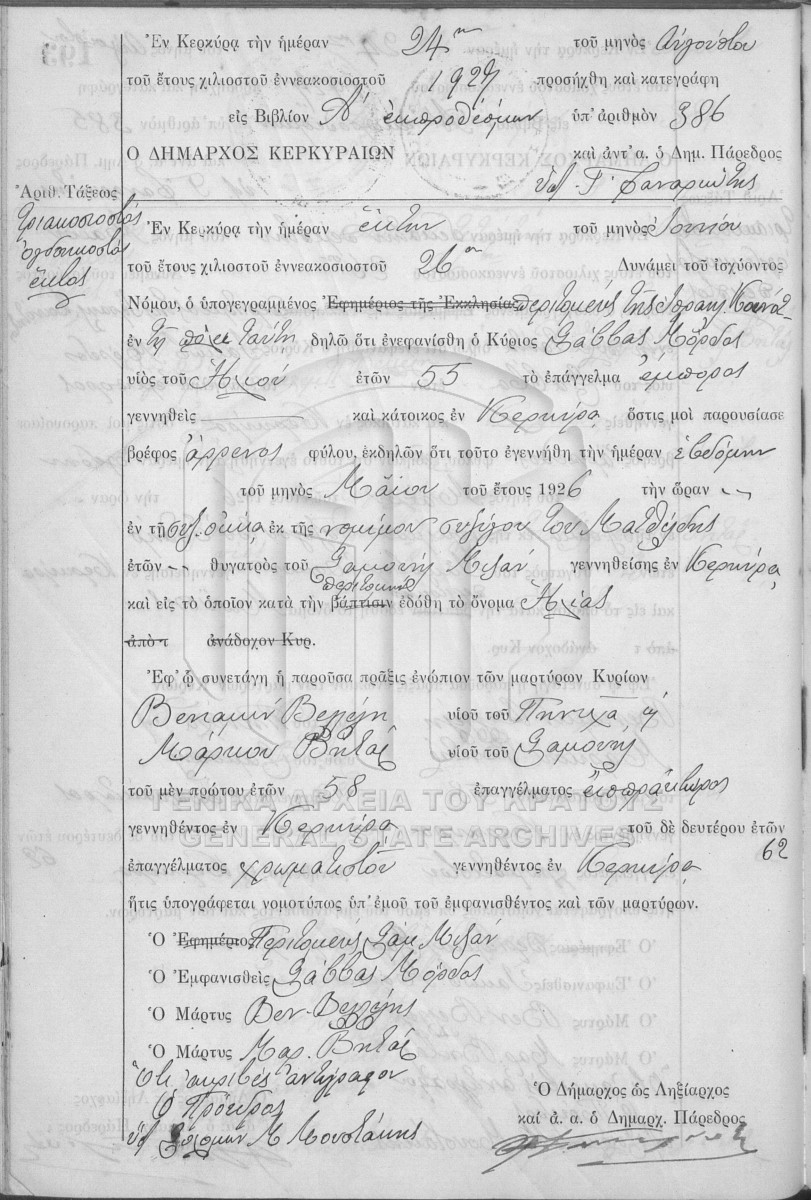 Ἐν Κερκύρᾳ τὴν ἡμέραν 24ην τοῦ μηνὸς Αὐγούστου
τοῦ ἔτους χιλιοστοῦ ἐννεακοσιοστοῦ 1927 προσήχθη καὶ κατεγράφη
εἰς Βιβλίον Α' ἐκπροθέσμων ὑπ' ἀριθμὸν 386
Ο ΔΗΜΑΡΧΟΣ ΚΕΡΚΥΡΑΙΩΝ καὶ ἀντ' α. ὁ Δημ. Πάρεδρος
Γ. Φαναριώτης
Ἀριθ. Τάξεως
Τριακοσιοστὸς
ὀγδοηκοστὸς
ἕκτος
Ἐν Κερκύρᾳ τὴν ἡμέραν ἕκτην τοῦ μηνὸς Ἰουνίου
τοῦ ἔτους χιλιοστοῦ ἐννεακοσιοστοῦ 26ου Δυνάμει τοῦ ἰσχύοντος
Νόμου, ὁ ὑπογεγραμμένος Ἐφημέριος τῆς Ἐκκλησίας περιτομεὺς τῆς Ἰσραηλ. Κοινότ.
ἐν τῇ πόλει ταύτῃ δηλῶ ὅτι ἐνεφανίσθη ὁ Κύριος Σάββας Μόρδος
υἱὸς τοῦ Ἠλιοῦ ἐτῶν 55 τὸ ἐπάγγελμα ἔμπορος
γεννηθεὶς καὶ κάτοικος ἐν Κερκύρᾳ ὅστις μοὶ παρουσίασε
βρέφος ἄρρενος φύλου, ἐκδηλῶν ὅτι τοῦτο ἐγεννήθη τὴν ἡμέραν ἑβδόμην
τοῦ μηνὸς Μαΐου τοῦ ἔτους 1926 τὴν ὥραν
ἐν τῇ συζ. οἰκίᾳ ἐκ τῆς νομίμου συζύγου του Ματθίλδης
ἐτῶν θυγατρὸς τοῦ Σαμουὴλ Μιζάν γεννηθείσης ἐν Κερκύρᾳ
περιτομὴν
καὶ εἰς τὸ ὁποῖον κατὰ τὴν βάπτισιν ἐδόθη τὸ ὄνομα Ἠλίας
ἀπὸ τ ἀνάδοχον Κυρ.
Ἐφ' ᾧ συνετάγη ἡ παροῦσα πρᾶξις ἐνώπιον τῶν μαρτύρων Κυρίων
Βενιαμὶν Βελλέλη υἱοῦ τοῦ
Μάρκου Βιτάλ υἱοῦ τοῦ Σαμουὴλ
τοῦ μὲν πρώτου ἐτῶν 58 ἐπαγγέλματος εἰσπράκτορος
ΓΕΝΙΚΑ ΑΡΧΕΙΑ ΤΟΥ ΚΡΑΤΟΥΣ
GENERAL STATE ARCHIVES
γεννηθέντος ἐν Κερκύρᾳ τοῦ δὲ δευτέρου ἐτῶν 62
ἐπαγγέλματος χρωματιστοῦ γεννηθέντος ἐν Κερκύρᾳ
ἥτις ὑπογράφεται νομοτύπως ὑπ' ἐμοῦ τοῦ ἐμφανισθέντος καὶ τῶν μαρτύρων.
Ὁ Ἐφημέριος Περιτομεὺς Σαμ. Μιζάν
Ὁ Ἐμφανισθεὶς Σάββας Μόρδος
Ὁ Μάρτυς Βεν. Βελλέλης
Ὁ Μάρτυς Μαρ. Βιτάλ
Ὅτι ἀκριβὲς ἀντίγραφον
Ὁ Πρόεδρος
Σολομὼν Μ. Μουστάκης
Ὁ Δήμαρχος ὡς Ληξίαρχος
καὶ ἀ. α. ὁ Δημαρχ. Πάρεδρος